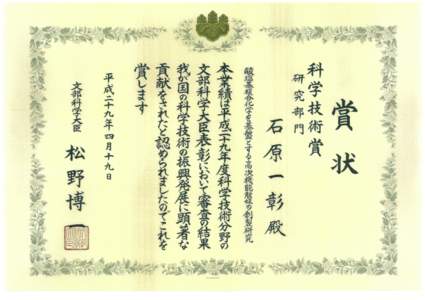 賞状
科学技術賞
研究部門
石原一彰殿
酸塩基複合化学を基盤とする高次機能触媒の創製研究
本業績は平成二十九年度科学技術分野の
文部科学大臣表彰において審査の結果
我が国の科学技術の振興発展に顕著な
貢献をされたと認められましたのでこれを
賞します
平成二十九年四月十九日
文部科学大臣
松野博一